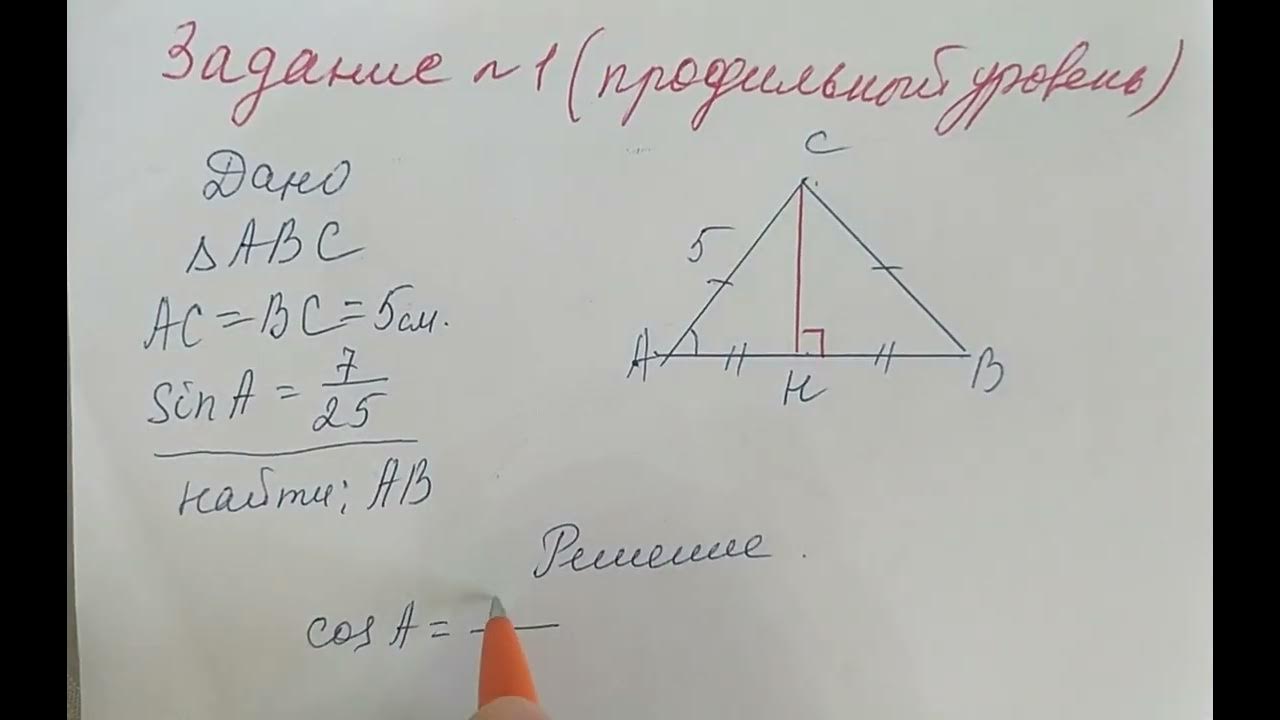 Задание ~1 (профильный уровень)
Дано
△ABC
AC=BC=5см.
sinA = 7/25
найти; AB
C
5
A
H
B
Решение.
cos A =